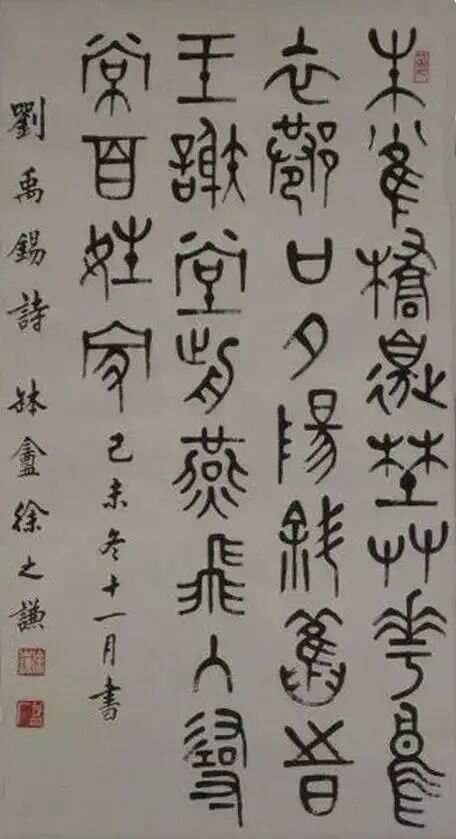 朱雀橋邊埜艸華烏
衣巷口夕陽斜舊旹
王謝堂前燕飛入尋
常百姓家 己未冬十一月書
劉禹錫詩 缽盦徐之謙